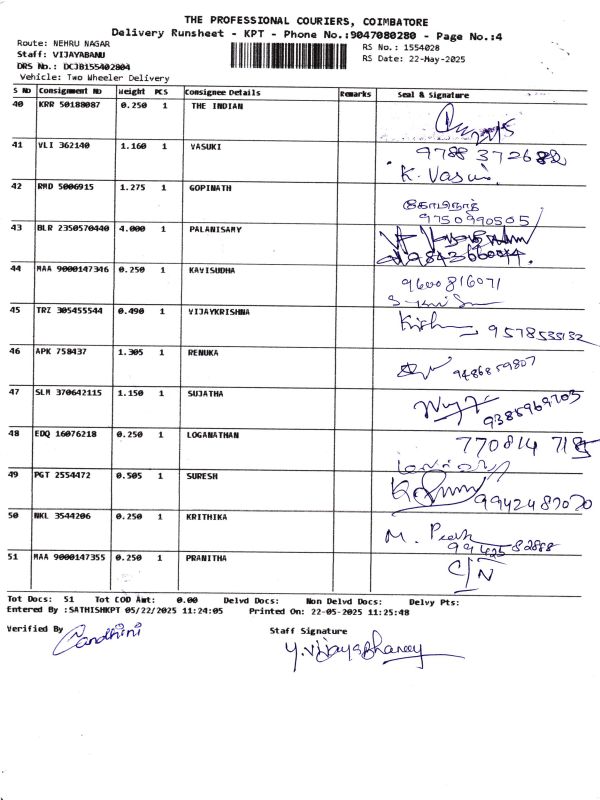 THE PROFESSIONAL COURIERS, COIMBATORE
Delivery Runsheet - KPT - Phone No.:9047080280 - Page No.:4
Route: NEHRU NAGAR
RS No.: 1554028
Staff: VIJAYABANU
RS Date: 22-May-2025
DRS No.: DCJB155402804
Vehicle: Two Wheeler Delivery
S No Consignment No Weight PCS Consignee Details Remarks Seal & Signature
40 KRR 50188087 0.250 1 THE INDIAN
41 VLI 362140 1.160 1 VASUKI 9788372682
K. Vasuki
42 RMD 5006915 1.275 1 GOPINATH கோபிநாத்
9750990505
43 BLR 2350570440 4.000 1 PALANISAMY
9843660044
44 MAA 9000147346 0.250 1 KAVISUDHA 9600816071
45 TRZ 305455544 0.490 1 VIJAYKRISHNA 9578535132
46 APK 758437 1.305 1 RENUKA 9486859807
47 SLM 370642115 1.150 1 SUJATHA 9385969703
48 EDQ 16076218 0.250 1 LOGANATHAN 770814 7185
49 PGT 2554472 0.505 1 SURESH 9942487070
50 NKL 3544206 0.250 1 KRITHIKA
51 MAA 9000147355 0.250 1 PRANITHA C/N
Tot Docs: 51 Tot COD Amt: 0.00 Delvd Docs: Non Delvd Docs: Delvy Pts:
Entered By :SATHISHKPT 05/22/2025 11:24:05 Printed On: 22-05-2025 11:25:48
Verified By Gandhini
Staff Signature
Y.Vijaya Bhanay